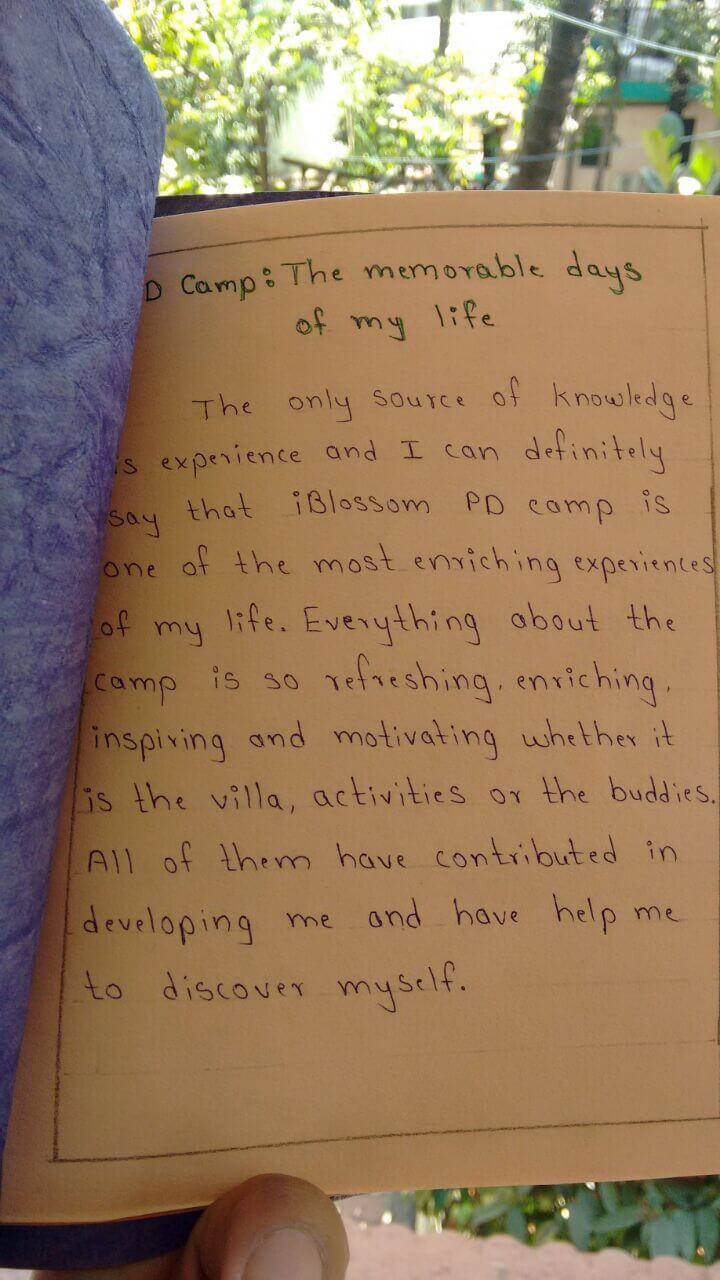 D Camp: The memorable days
of my life
The only source of knowledge
is experience and I can definitely
say that iBlossom PD camp is
one of the most enriching experiences
of my life. Everything about the
camp is so refreshing, enriching,
inspiring and motivating whether it
is the villa, activities or the buddies.
All of them have contributed in
developing me and have help me
to discover myself.